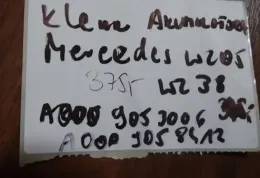 Klema Akumulator
Mercedes W205
375r W238
A000 905 3006
A000 905 8412